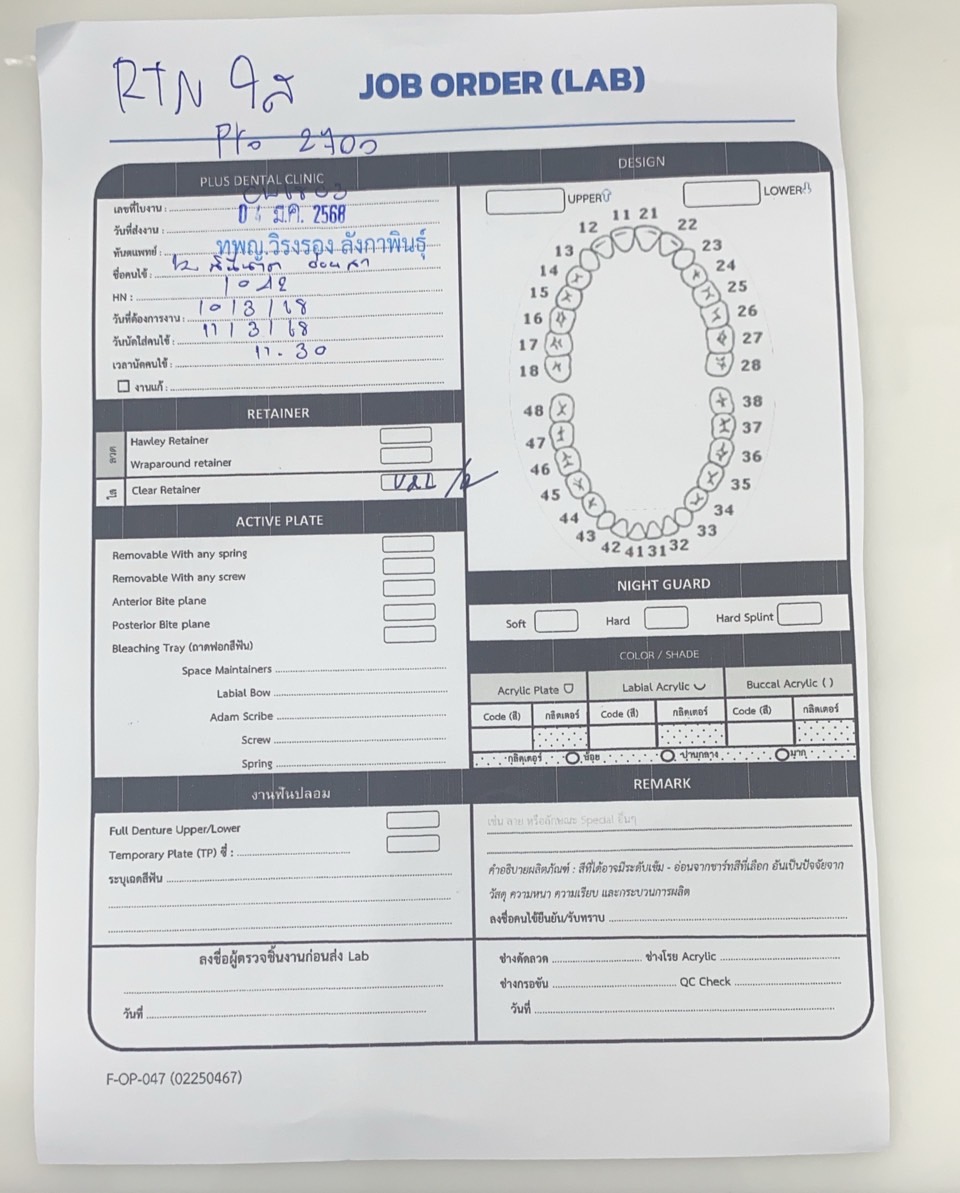 RTN ใส
JOB ORDER (LAB)
Pro 2700
PLUS DENTAL CLINIC
เลขที่ใบงาน :
วันที่ส่งงาน : 04 มี.ค. 2568
ทันตแพทย์ : ทพญ.วิรงรอง ลังกาพินธุ์
ชื่อคนไข้ :
HN :
วันที่ต้องการงาน : 10/3/68
วันนัดใส่คนไข้ : 11/3/68
เวลานัดคนไข้ : 11.30
งานแก้ :
RETAINER
ลวด
Hawley Retainer
Wraparound retainer
ใส
Clear Retainer U&L
ACTIVE PLATE
Removable With any spring
Removable With any screw
Anterior Bite plane
Posterior Bite plane
Bleaching Tray (ถาดฟอกสีฟัน)
Space Maintainers
Labial Bow
Adam Scribe
Screw
Spring
งานฟันปลอม
Full Denture Upper/Lower
Temporary Plate (TP) ซี่ :
ระบุเฉดสีฟัน
ลงชื่อผู้ตรวจชิ้นงานก่อนส่ง Lab
วันที่
DESIGN
UPPER LOWER
11 21
12 22
13 23
14 24
15 25
16 26
17 27
18 28
48 38
47 37
46 36
45 35
44 34
43 33
42 41 31 32
NIGHT GUARD
Soft Hard Hard Splint
COLOR / SHADE
Acrylic Plate Labial Acrylic Buccal Acrylic ( )
Code (สี) กลิตเตอร์ Code (สี) กลิตเตอร์ Code (สี) กลิตเตอร์
กลิตเตอร์ น้อย ปานกลาง มาก
REMARK
เช่น ลาย หรือลักษณะ Special อื่นๆ
คำอธิบายผลิตภัณฑ์ : สีที่ได้อาจมีระดับเข้ม - อ่อนจากชาร์ทสีที่เลือก อันเป็นปัจจัยจาก
วัสดุ ความหนา ความเรียบ และกระบวนการผลิต
ลงชื่อคนไข้ยืนยัน/รับทราบ
ช่างดัดลวด ช่างโรย Acrylic
ช่างกรอขัน QC Check
วันที่
F-OP-047 (02250467)